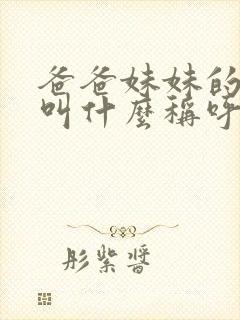 爸爸妹妹的
叫什麼稱呼
彤紫醬